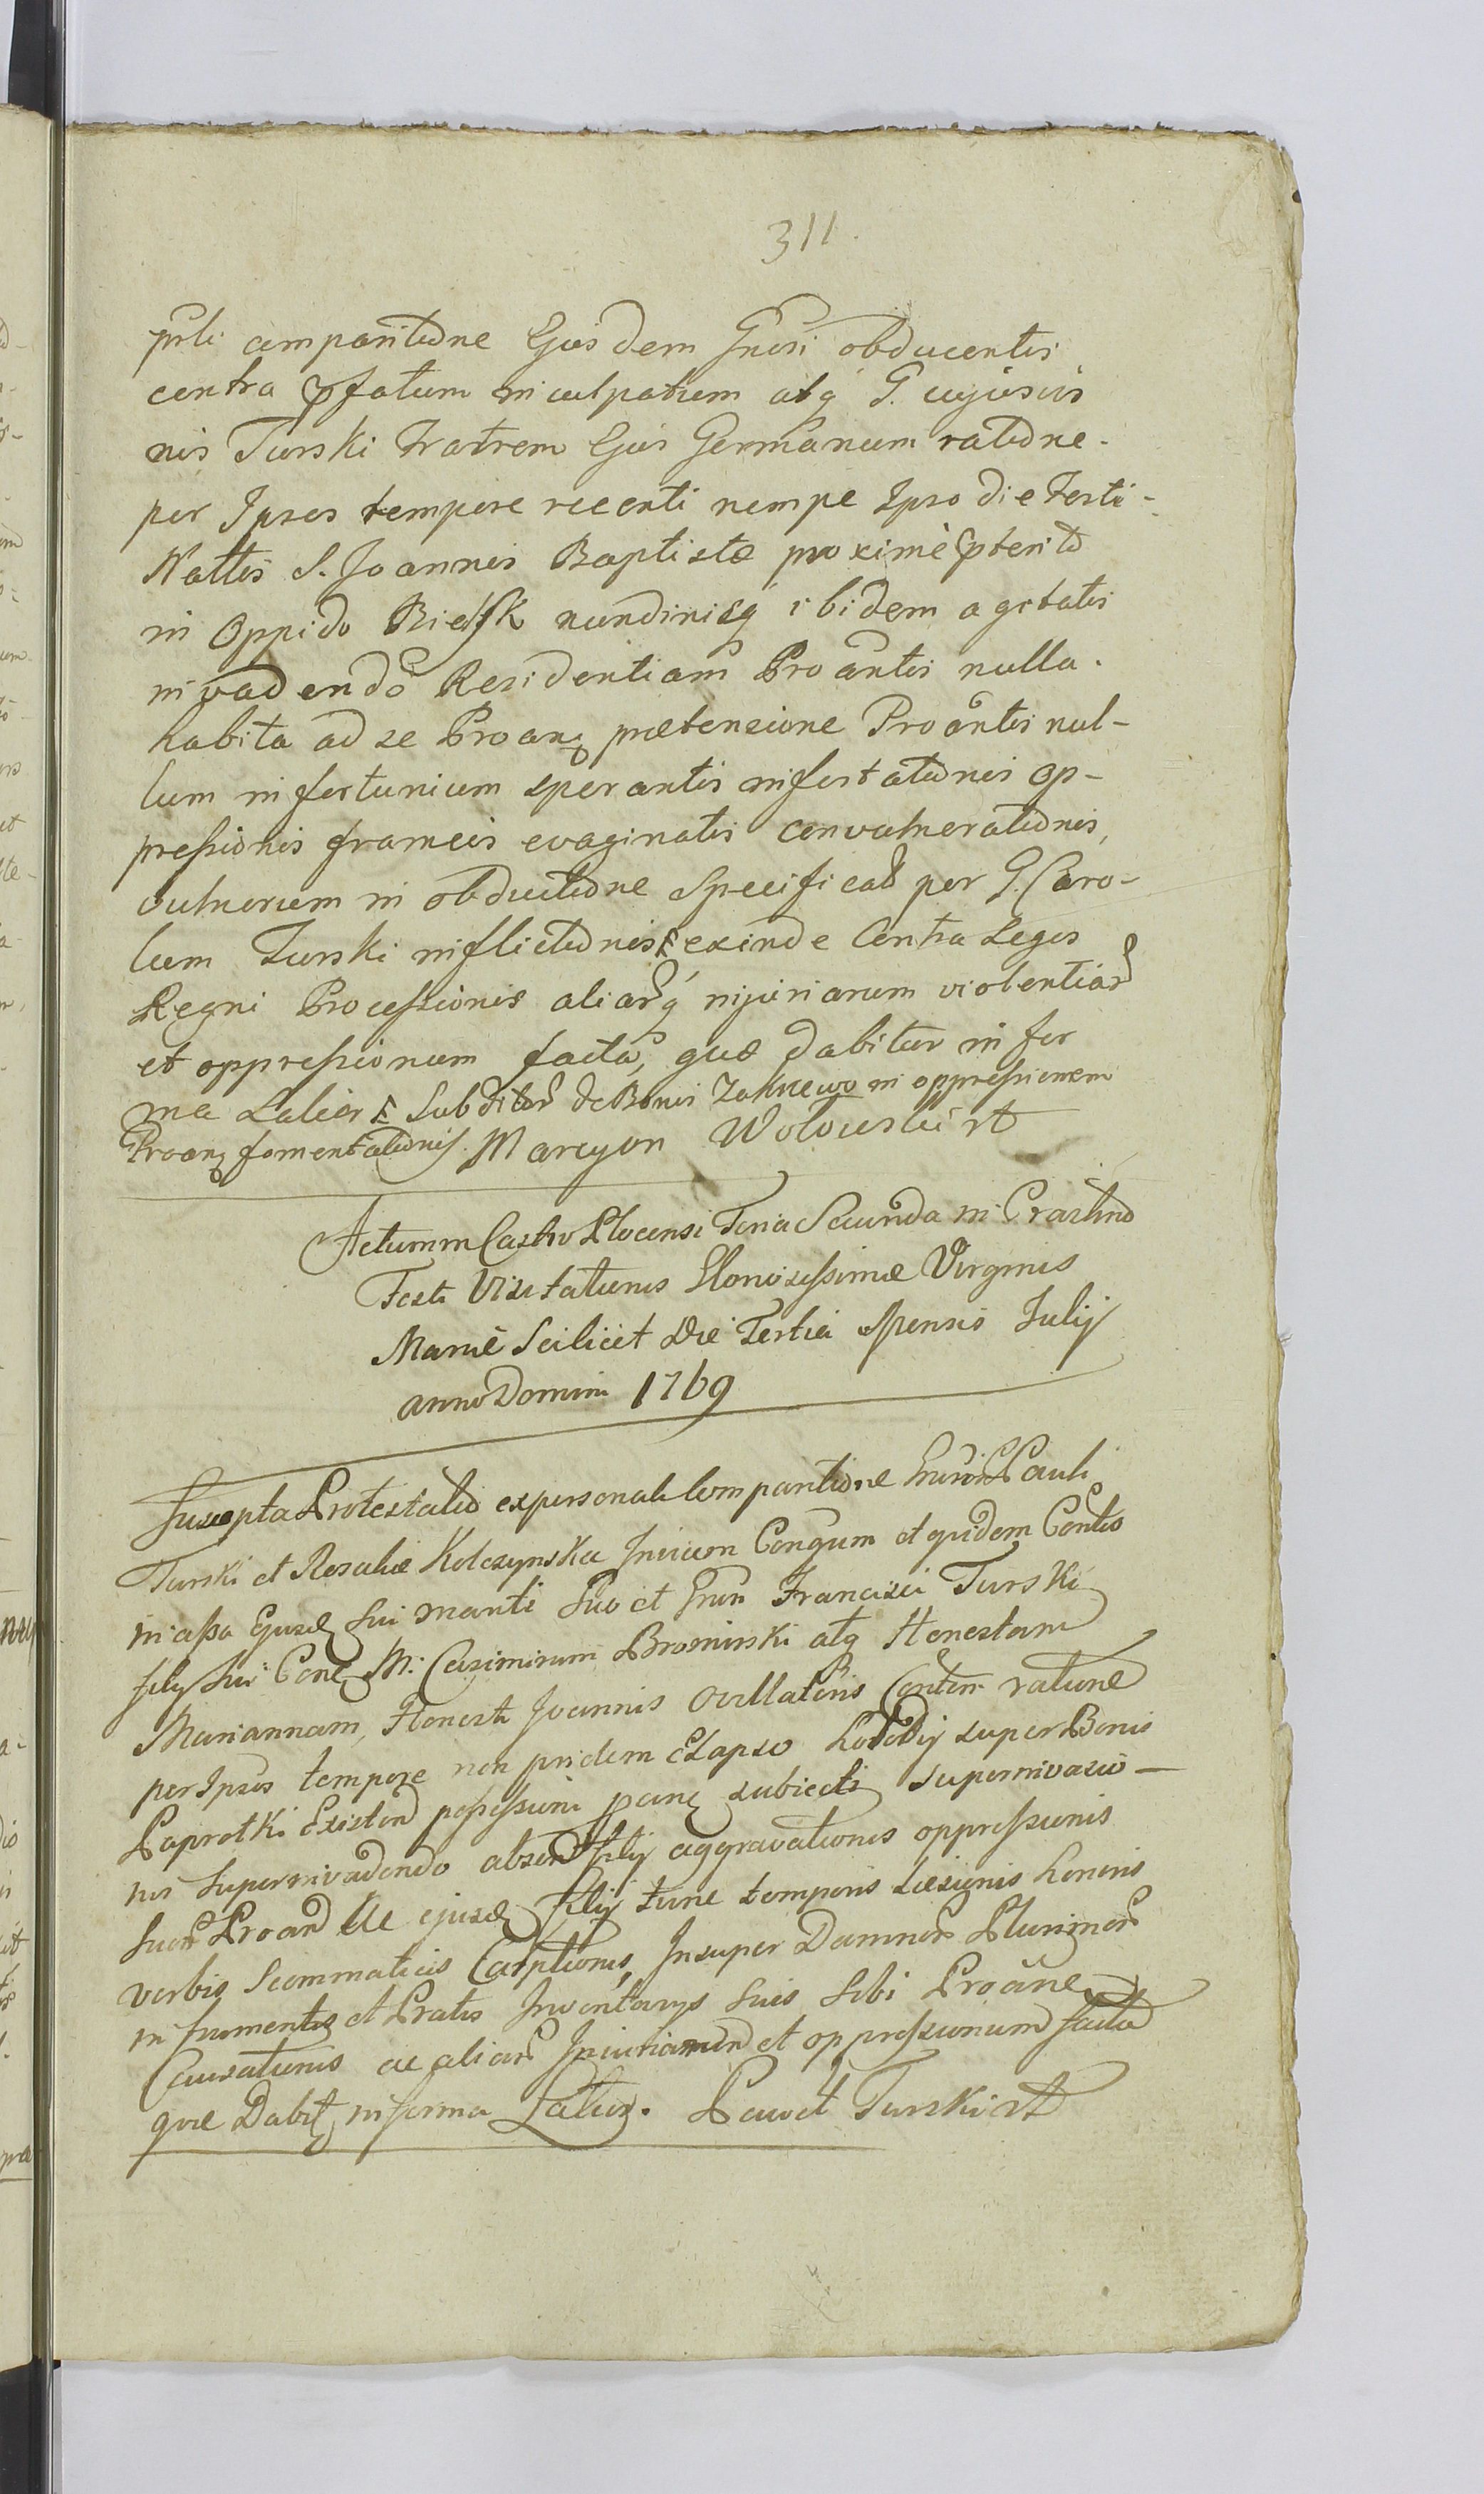 311.
prsti comparitione Ejusdem Gnrsi obducentis
contra Praefatum inculpatum atq G. cujusvis
nis Turski Fratrem Ejus Germanum ratione
per Ipsos tempore recenti nempe Ipso die Festi
Nattis S. Joannis Baptistæ proxime præterito
in Oppido Bielsk nundinisq ibidem agitatis
invadendo Residentiam Proantis nulla
habita ad se Proanq prætensione Proantis nul-
lum infortunium sperantis infestationis op-
pressionis frameis evaginatis convulnerationis,
vulnerum in obductione Specificat per G. Caro-
lum Turski inflictionis exinde Contra Leges
Regni Processionis aliarq injuriarum violentiar
et oppressionum facta, quæ dabitur in for
ma Latior Subditor de Bonis Zakrzewo in oppressionem
Proanq fomentationis. Marcyon Wolowski rt
Actum in Castro Plocensi Feria Secunda in Crastino
Festi Visitationis Gloriosissimæ Virginis
Mariæ Scilicet Die Tertia Mensis Julij
anno Domini 1769
Suscepta Protestatio ex personali Comparitione Gnrsor Pauli
Turski et Rosaliæ Kolczynska Invicem Congum et quidem Contis
in assa Ejusd sui mariti Suo et Gnrsi Francisci Turski
filij sui Conq M. Casimirum Brominski atq Honestam
Mariannam, Honesti Joannis Ovillatoris Contem ratione
per Ipsos tempore non pridem elapso hostodij super Bonis
Paprotki Existen possessioni Proanq subiecti Supernivasio-
nis Supernivadendo absen filij aggravationis oppressionis
suor Proan Ac ejusd filij tunc temporis Læsionis honoris
verbis Scommaticis Carptionis, Insuper Damnor Plurimor
in frumentis et Pratis Inventarys suis sibi Proane
Causationis ac aliar Injuriarum et oppressionum facta
quæ Dabit in forma Latior. Paweł Turski rt